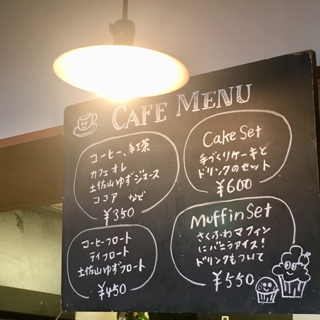 CAFE MENU
コーヒー、紅茶
カフェオレ
土佐山ゆずジュース
ココア など
¥350
Cake Set
手づくりケーキと
ドリンクのセット
¥600
コーヒーフロート
ティフロート
土佐山ゆずフロート
¥450
Muffin Set
さくふわマフィン
にバニラアイス!
ドリンクもついて
¥550